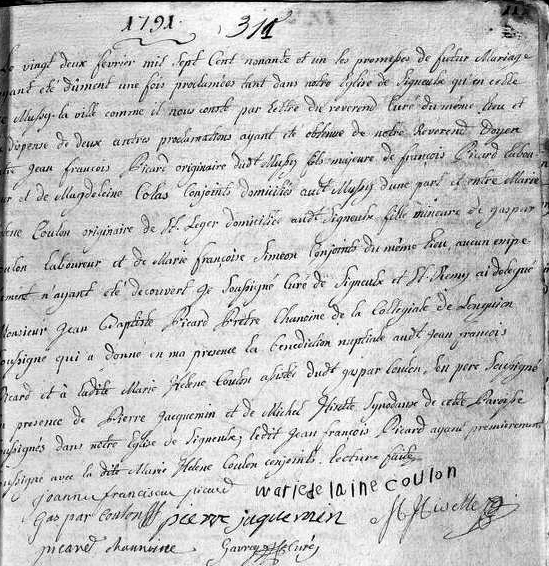 1791. 311
Le vingt deux fevrier mil sept Cent nonante et un les promesses de futur Mariage
ayant eté dûment une fois proclameés tant dans notre Eglise de Signeulx qu'en celle
de Mussy-la ville comme il nous conste par Lettre du reverend Curé du même lieu et
dispense de deux autres proclamations ayant été obtenue de notre Reverend Doyen
entre jean francois Picard originaire dudt Mussy fils majeure de françois Picard labou-
reur et de Magdeleine Colas Conjoints domiciliés audt Mussy d'une part et entre Marie
helene Coulon originaire de St. Leger domiciliée audt Signeulx fille mineure de gaspar
Coulon Laboureur et de Marie françoise Simeon Conjoints du même lieu, aucun empe
chement n'ayant eté decouvert Je soussigné Curé de Signeulx et St. Remy ai delegué
Monsieur Jean Baptiste Picard Prêtre Chanoine de la Collegiale de Longuion
soussigné qui a donné en ma presence la benediction nuptiale audt jean françois
Picard et à ladite Marie Helene Coulon assistés dudt gaspar Coulon, son pere soussigné
en presence de Pierre Jacquemin et de Michel Hisette Synodaux de cette Paroisse
soussignés dans notre Eglise de Signeulx; ledit Jean françois Picard ayant premierement
soussigné avec la dite Marie Helene Coulon conjoints. lecture faite
joannes franciscus picard marie de laine coulon
Gaspar Coulon pierre jaquemin M Hisette
picard chanoine Curé